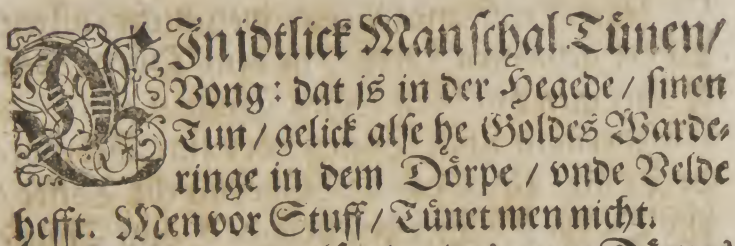 EJn jdtlick Man schal Tuͤnen/
Vong: dat js in der Hegede / sinen
Tun / gelick alse he Goldes Warde⸗
ringe in dem Doͤrpe / vnde Velde
hefft. Men vor Stuff / Tuͤnet men nicht.